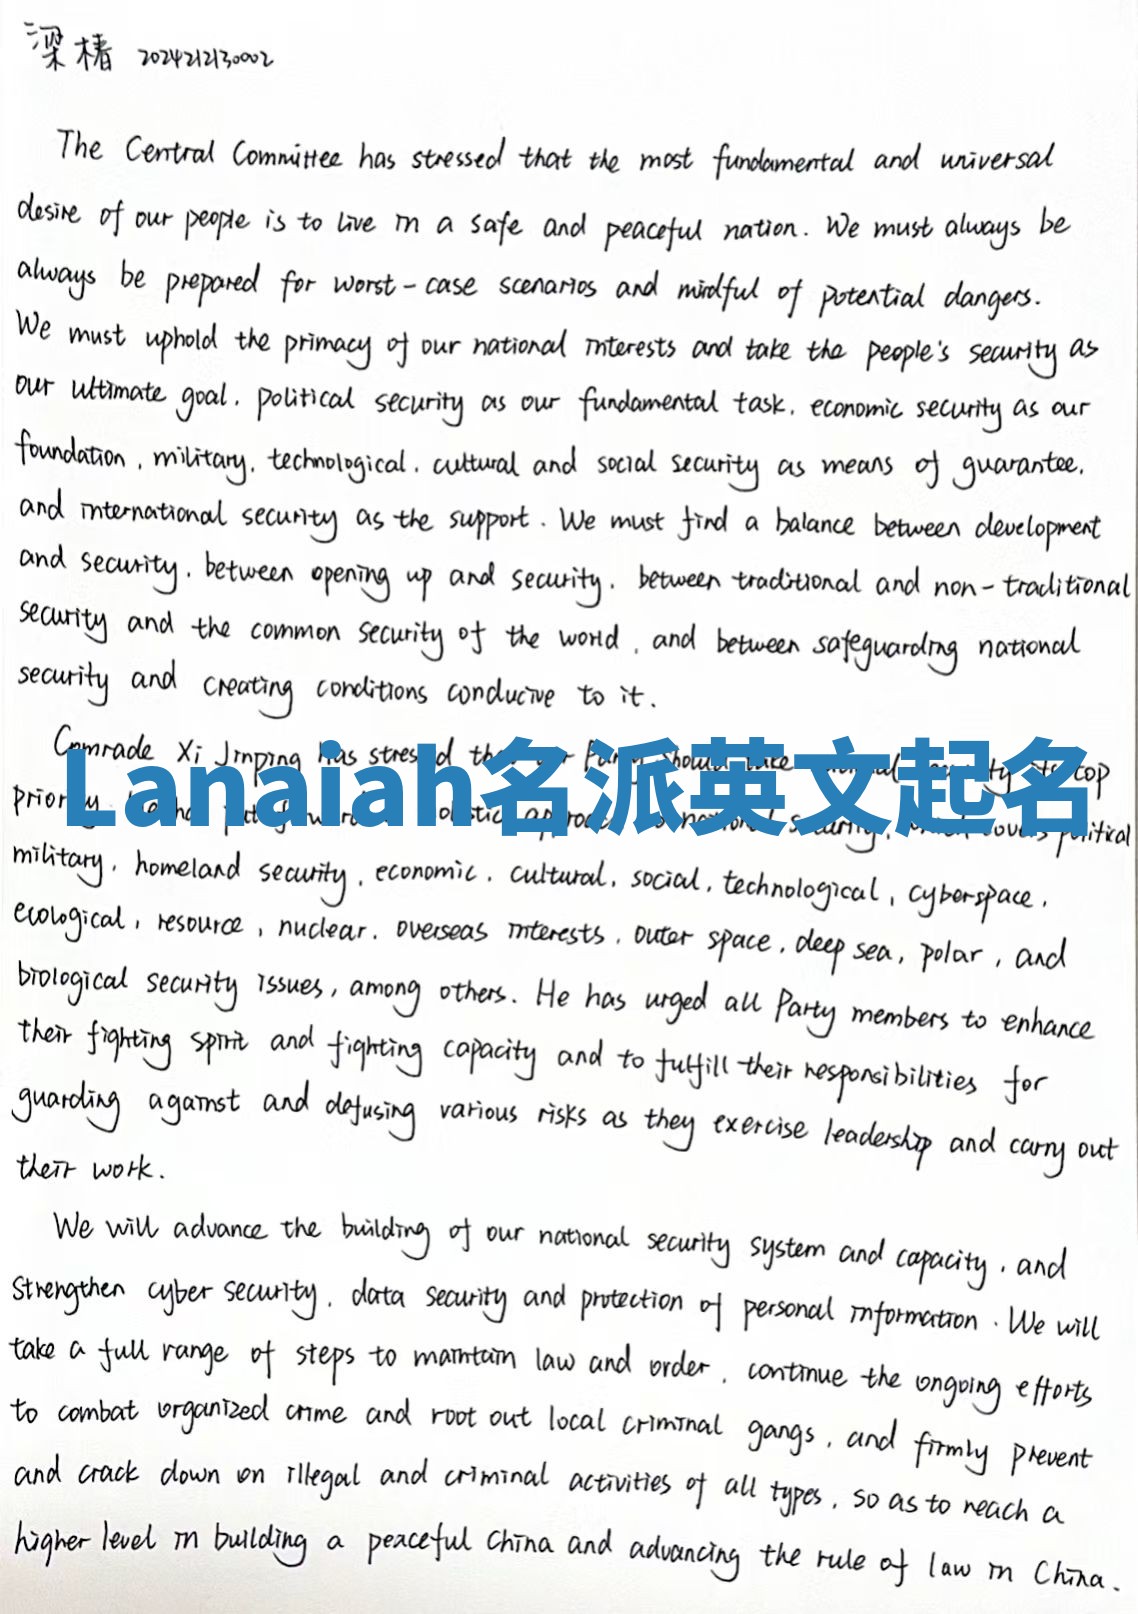 梁椿 2024212130002
The Central Committee has stressed that the most fundamental and universal
desire of our people is to live in a safe and peaceful nation. We must always be
always be prepared for worst-case scenarios and mindful of potential dangers.
We must uphold the primacy of our national interests and take the people's security as
our ultimate goal, political security as our fundamental task, economic security as our
foundation, military, technological, cultural and social security as means of guarantee,
and international security as the support. We must find a balance between development
and security, between opening up and security, between traditional and non-traditional
security and the common security of the world, and between safeguarding national
security and creating conditions conducive to it.
Comrade Xi Jinping has stressed top
Lanaiah名派英文起名
political
military, homeland security, economic, cultural, social, technological, cyberspace,
ecological, resource, nuclear, overseas interests, outer space, deep sea, polar, and
biological security issues, among others. He has urged all Party members to enhance
their fighting spirit and fighting capacity and to fulfill their responsibilities for
guarding against and defusing various risks as they exercise leadership and carry out
their work.
We will advance the building of our national security system and capacity, and
strengthen cyber security, data security and protection of personal information. We will
take a full range of steps to maintain law and order, continue the ongoing efforts
to combat organized crime and root out local criminal gangs, and firmly prevent
and crack down on illegal and criminal activities of all types, so as to reach a
higher level in building a peaceful China and advancing the rule of law in China.